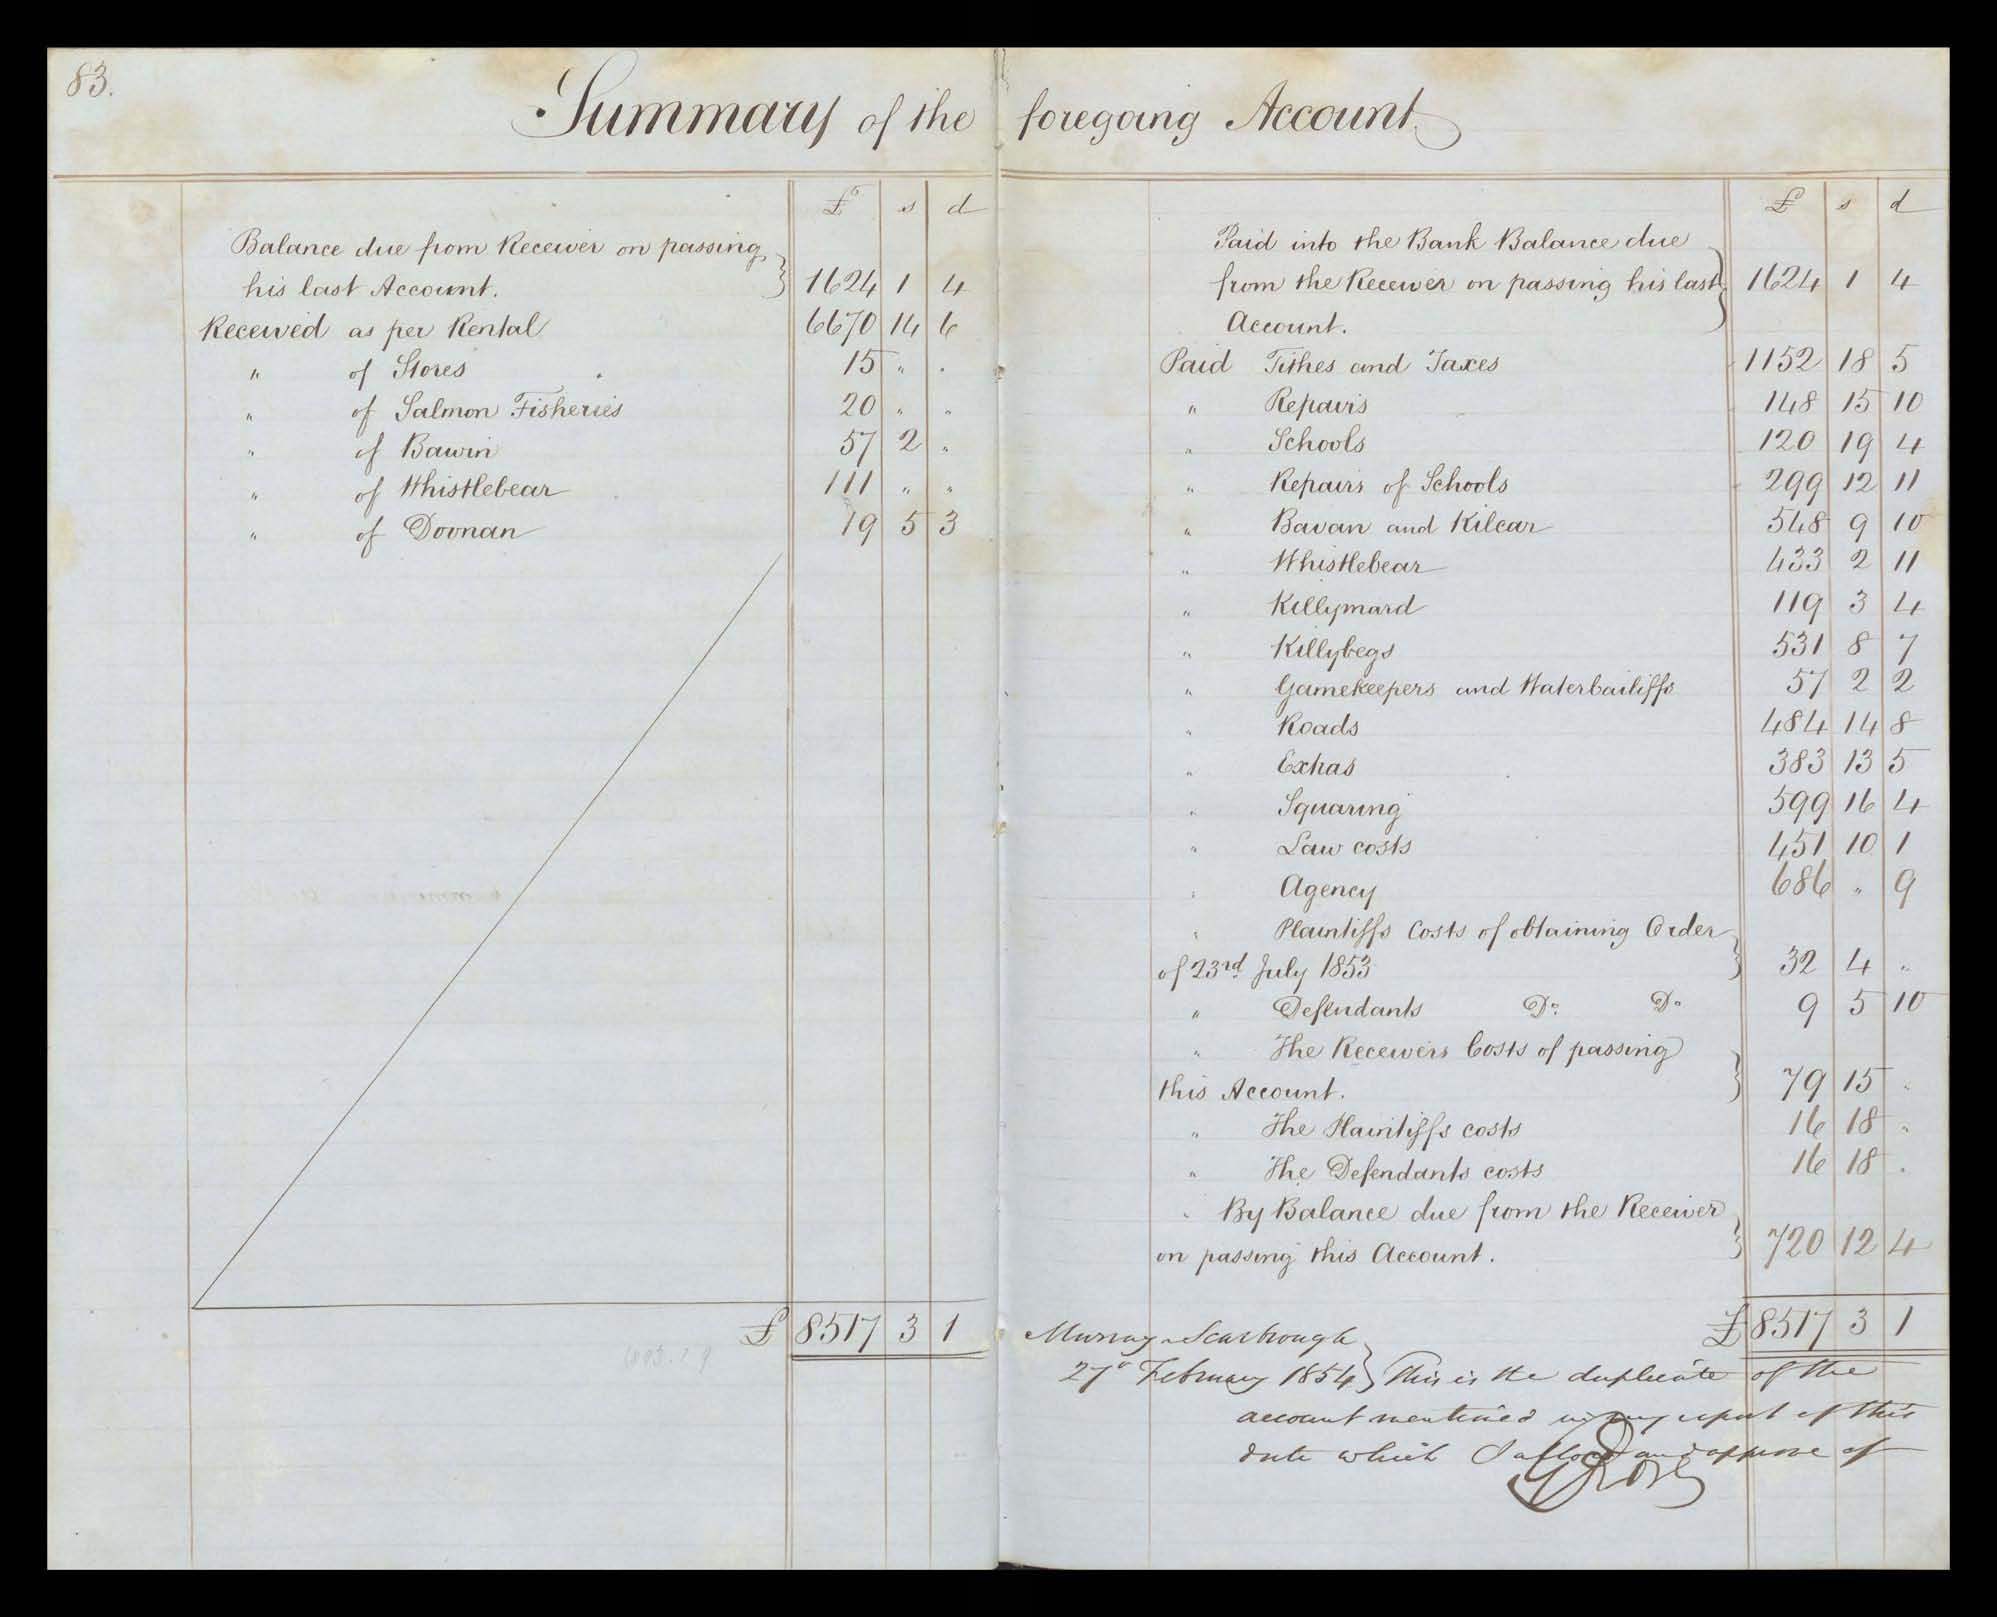 83.
Summary of the foregoing Account
£ s d
Balance due from Receiver on passing
his last Account. 1624 1 4
Received as per Rental 6670 14 6
" of Stores 15 " "
" of Salmon Fisheries 20 " "
" of Bawin 57 2 "
" of Whistlebear 111 " "
" of Doonan 19 5 3
£ 8517 3 1
£ s d
Paid into the Bank Balance due
from the Receiver on passing his last 1624 1 4
Account.
Paid Tithes and Taxes 1152 18 5
" Repairs 148 15 10
" Schools 120 19 4
" Repairs of Schools 299 12 11
" Bavan and Kilcar 548 9 10
" Whistlebear 433 2 11
" Killymard 119 3 4
" Killybegs 531 8 7
" Gamekeepers and Waterbailiffs 57 2 2
" Roads 484 14 8
" Extras 383 13 5
" Squaring 599 16 4
" Law costs 451 10 1
" Agency 686 " 9
" Plaintiffs Costs of obtaining Order
of 23rd July 1853 32 4 "
" Defendants Do. Do. 9 5 10
" The Receivers Costs of passing
this Account. 79 15 "
" The Plaintiffs costs 16 18 "
" The Defendants costs 16 18 "
" By Balance due from the Receiver
on passing this Account. 720 12 4
£ 8517 3 1
Murray v Scarbrough
27o February 1854 } This is the duplicate of the
account mentioned in my report of this
date which I allow and approve of